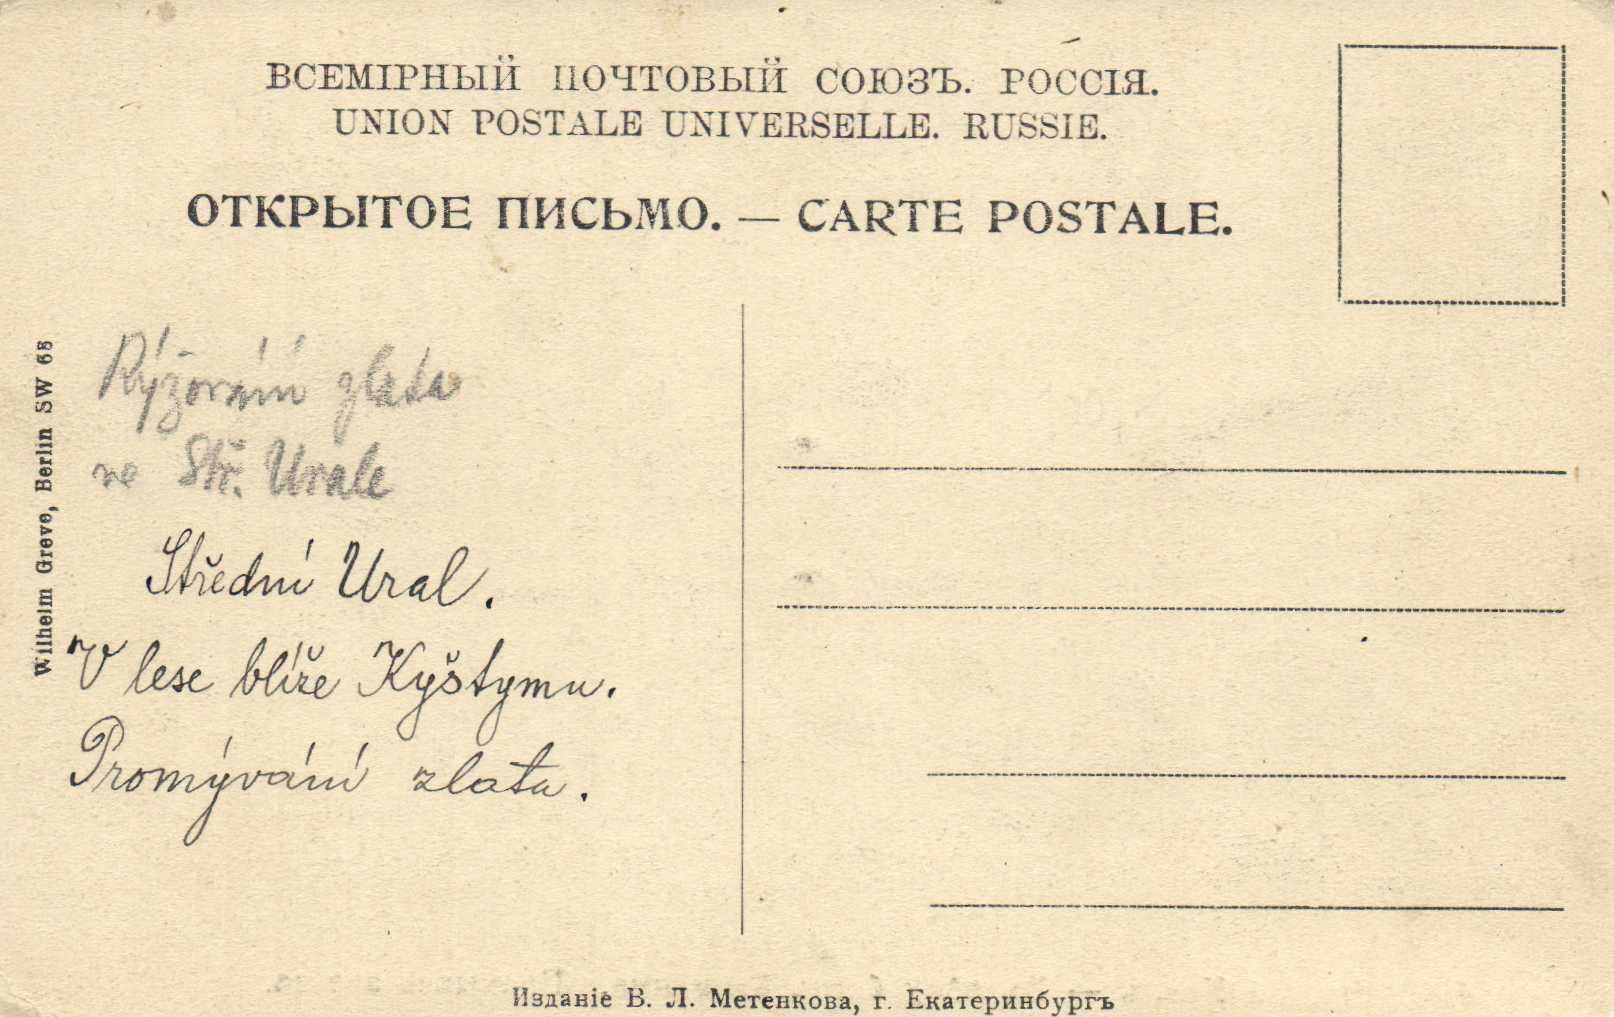 ВСЕМІРНЫЙ ПОЧТОВЫЙ СОЮЗЪ. РОССІЯ.
UNION POSTALE UNIVERSELLE. RUSSIE.
ОТКРЫТОЕ ПИСЬМО. — CARTE POSTALE.
Rýžování zlata
ve Stř. Urale
Střední Ural.
V lese blíže Kyštymu.
Promývání zlata.
Wilhelm Greve, Berlin SW 68
Изданіе В. Л. Метенкова, г. Екатеринбургъ